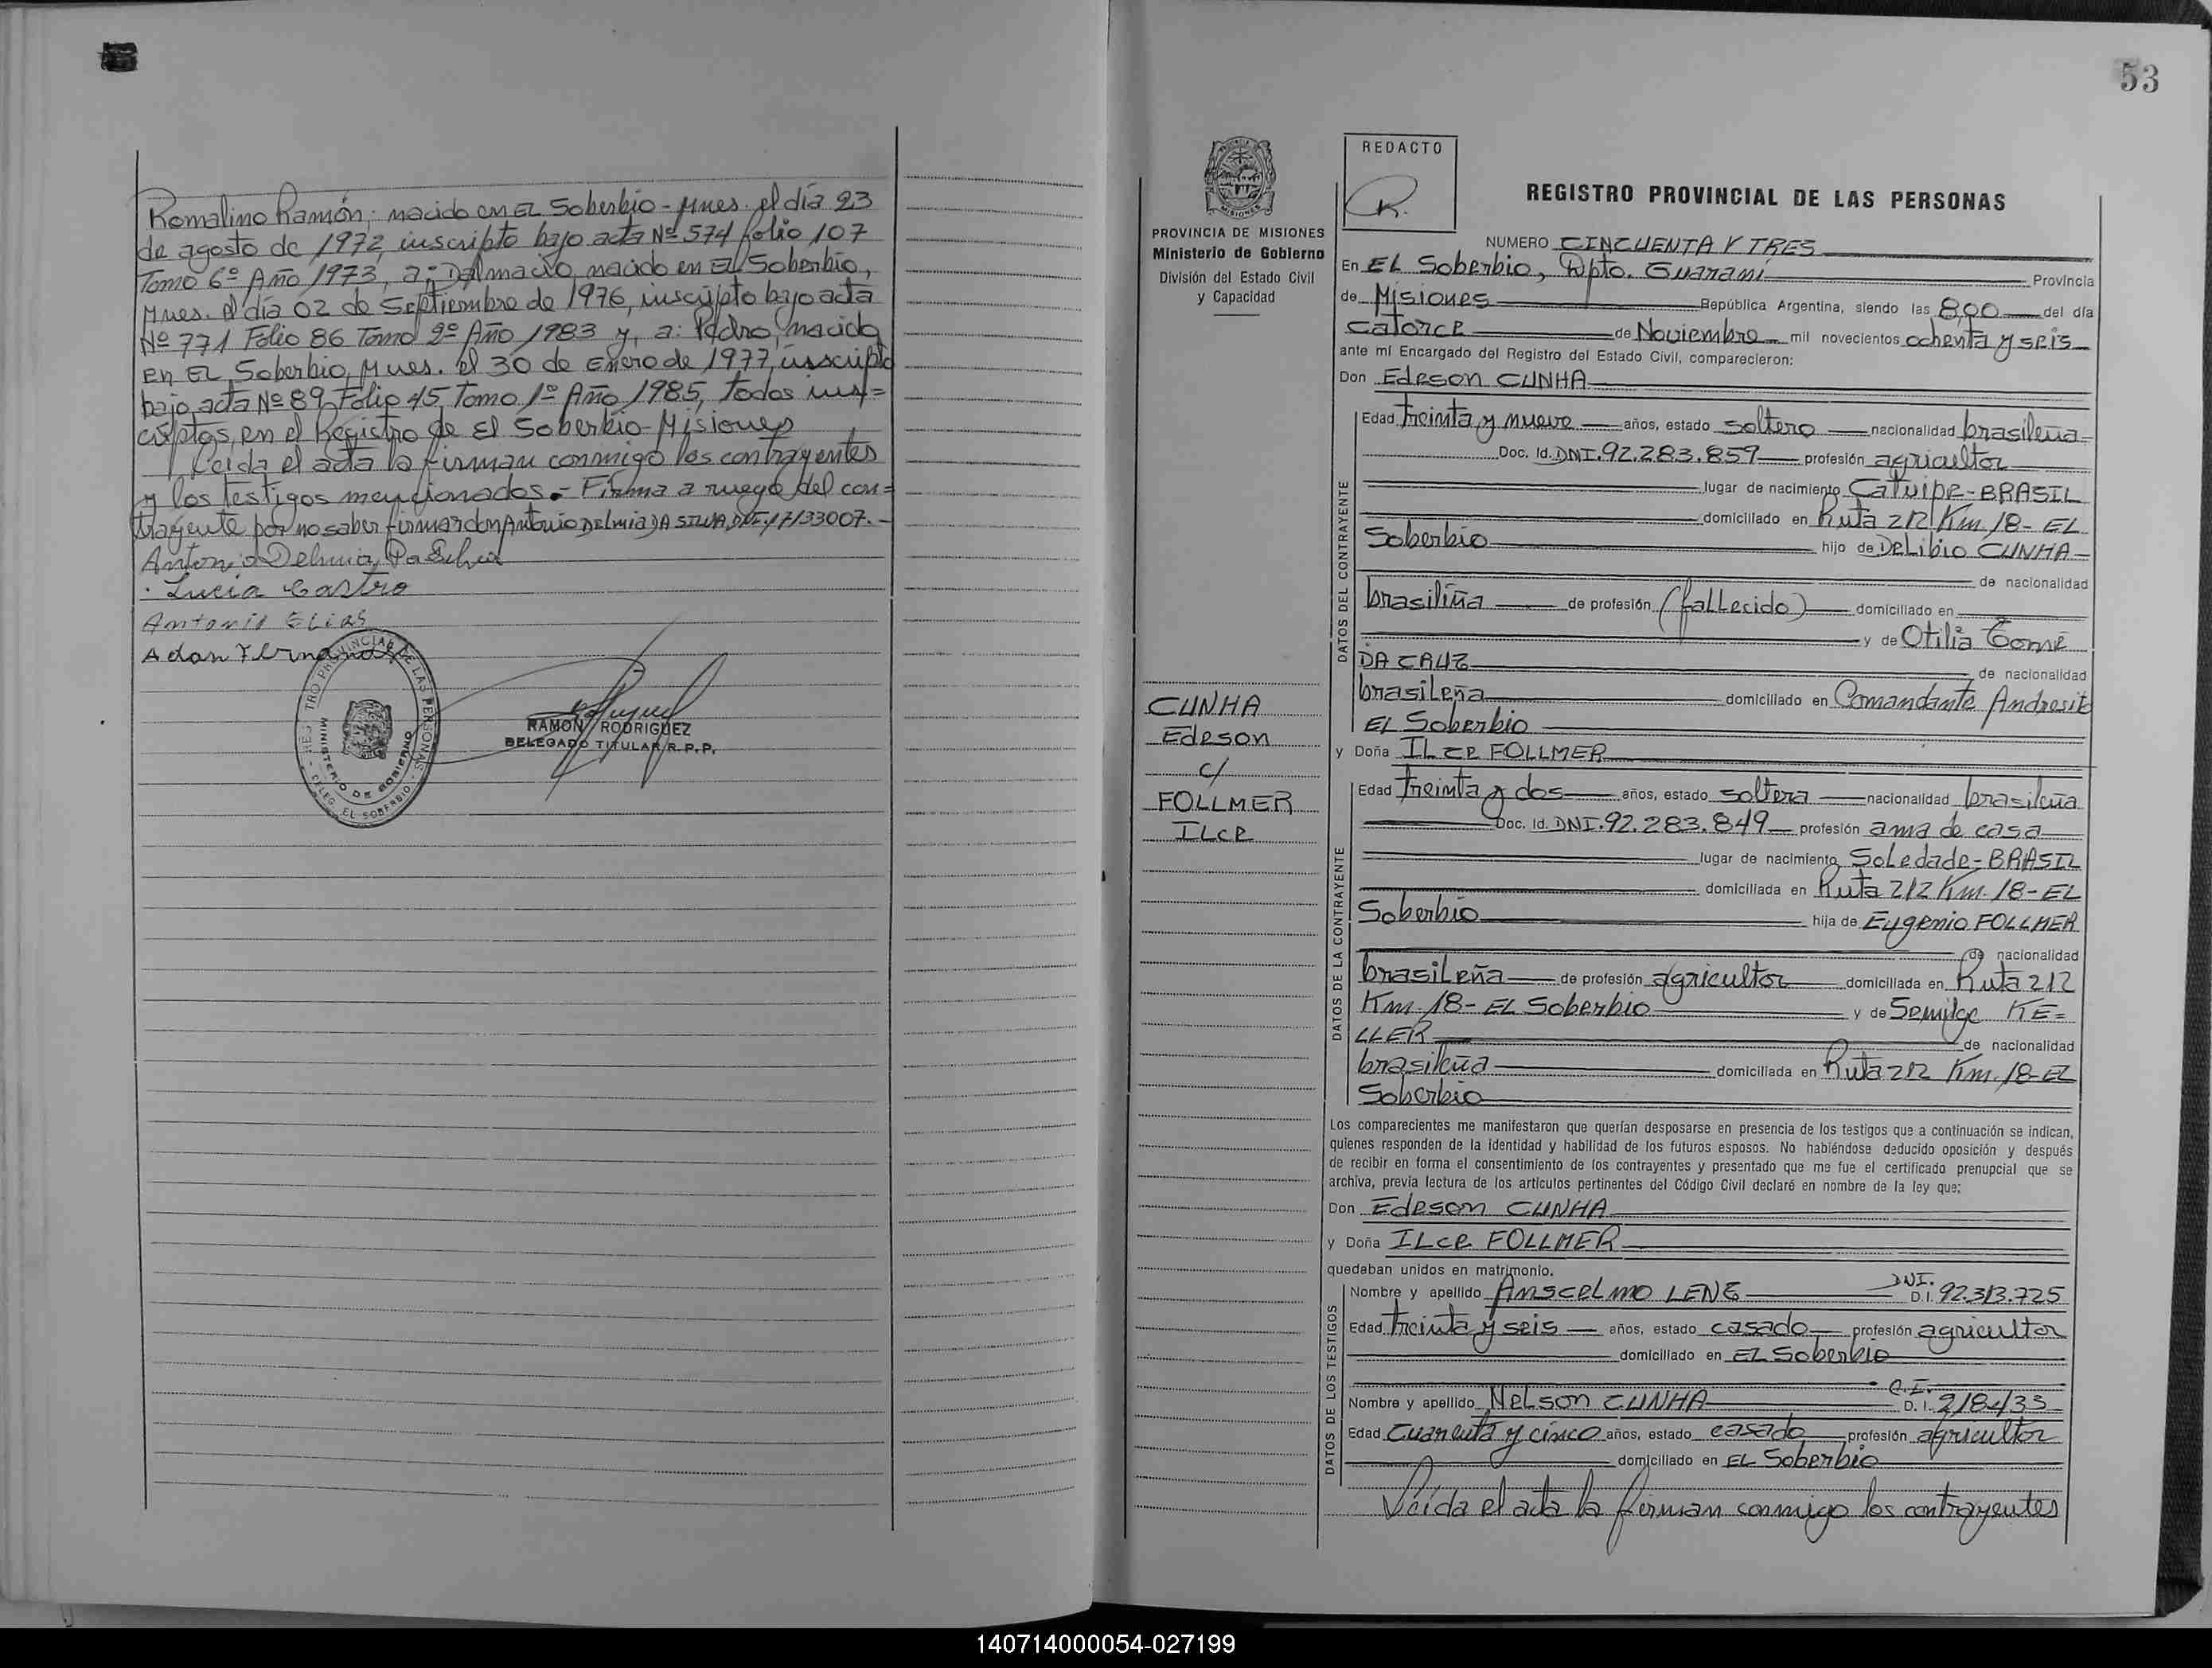 Romalino Ramón; nacido en EL Soberbio - Mnes. el día 23
de agosto de 1972, inscripto bajo acta Nº 574 folio 107
Tomo 6º Año 1973, a: Dalmacio, nacido en EL Soberbio,
Mnes. el día 02 de Septiembre de 1976, inscripto bajo acta
Nº 771 Folio 86 Tomo 2º Año 1983 y, a: Pedro, nacido
en EL Soberbio, Mnes. el 30 de Enero de 1977, inscripto
bajo acta Nº 89 Folio 45 Tomo 1º Año 1985, todos ins=
criptos, en el Registro de El Soberbio - Misiones
Leida el acta la firman conmigo los contrayentes
y los testigos mencionados.- Firma a ruego del con=
trayente por no saber firmar don Antonio Delmia DA SILVA, DNI. 17133007.-
Antonio Delmia Da Silva
Lucia Castro
Antonio Elias
Adan Fernandez
REGISTRO PROVINCIAL DE LAS PERSONAS
MINISTERIO DE GOBIERNO
DELEG. EL SOBERBIO
RAMON RODRIGUEZ
DELEGADO TITULAR R.P.P.
53
PROVINCIA DE MISIONES
Ministerio de Gobierno
División del Estado Civil
y Capacidad
CUNHA
Edeson
c/
FOLLMER
ILce
REDACTO
R.
REGISTRO PROVINCIAL DE LAS PERSONAS
NUMERO CINCUENTA Y TRES
En EL Soberbio, Dpto. Guarani Provincia
de Misiones República Argentina, siendo las 8,00 del día
catorce de Noviembre mil novecientos ochenta y seis
ante mí Encargado del Registro del Estado Civil, comparecieron:
Don Edeson CUNHA
DATOS DEL CONTRAYENTE
Edad treinta y nueve años, estado soltero nacionalidad brasileña
Doc. Id. DNI. 92.283.859 profesión agricultor
lugar de nacimiento Catuipe - BRASIL
domiciliado en Ruta 212 Km. 18 - EL
Soberbio hijo de DeLibio CUNHA
de nacionalidad
brasileña de profesión (fallecido) domiciliado en
y de Otilia Gomé
DA CRUZ de nacionalidad
brasileña domiciliado en Comandante Andresito
EL Soberbio
y Doña ILce FOLLMER
DATOS DE LA CONTRAYENTE
Edad treinta y dos años, estado soltera nacionalidad brasileña
Doc. Id. DNI. 92.283.849 profesión ama de casa
lugar de nacimiento Soledade - BRASIL
domiciliada en Ruta 212 Km. 18 - EL
Soberbio hija de Eugenio FOLLMER
de nacionalidad
brasileña de profesión agricultor domiciliada en Ruta 212
Km. 18 - EL Soberbio y de KE=
LLER de nacionalidad
brasileña domiciliada en Ruta 212 Km. 18 - EL
Soberbio
Los comparecientes me manifestaron que querían desposarse en presencia de los testigos que a continuación se indican,
quienes responden de la identidad y habilidad de los futuros esposos. No habiéndose deducido oposición y después
de recibir en forma el consentimiento de los contrayentes y presentado que me fue el certificado prenupcial que se
archiva, previa lectura de los artículos pertinentes del Código Civil declaré en nombre de la ley que:
Don Edeson CUNHA
y Doña ILce FOLLMER
quedaban unidos en matrimonio.
DATOS DE LOS TESTIGOS
Nombre y apellido Anscelmo LENE DNI. D.I. 92.313.725
Edad treinta y seis años, estado casado profesión agricultor
domiciliado en EL Soberbio
Nombre y apellido Nelson CUNHA C.I. D.I. 218433
Edad cuarenta y cinco años, estado casado profesión agricultor
domiciliado en EL Soberbio
Leída el acta la firman conmigo los contrayentes
140714000054-027199